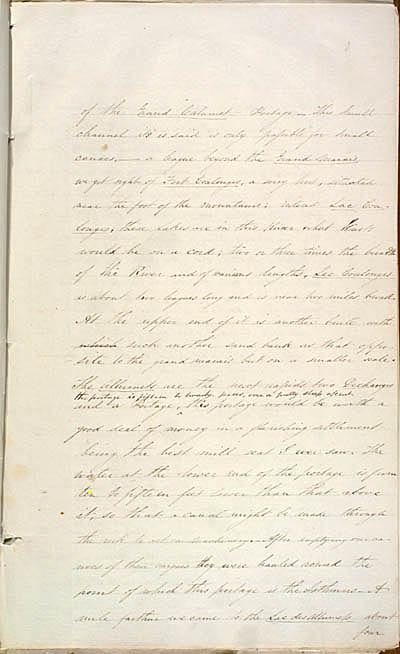 of the Grand Calumet Portage — This small
channel it is said is only passable for small
canoes, — a league beyond the Grand Marais,
we get sight of Fort Coulonges, a very neat, situated
near the foot of the mountains; called Lac Cou-
longes, these lakes are in this river what
would be on a cord; two or three times the breadth
of the River and of various lengths, Lac Coulonges
is about two leagues long and is near two miles broad.
At the upper end of it is another butte with
which such another sand bank as that oppo-
site to the grand marais but on a smaller scale.
The Allumets are the next rapids two Decharges
the portage is fifteen to twenty paces, over a pretty steep ascent.
and a Portage, this portage would be worth a
good deal of money in a flourishing settlement
being the best mill seat I ever saw. The
water at the lower end of the portage is from
ten to fifteen feet lower than that above
it, so that a canal might be made through
the rock to set on machinery. After emptying our ca-
noes of their cargoes they were hauled round the
point of which this portage is the A
mile farther we came to the Lac des Allumets about
four